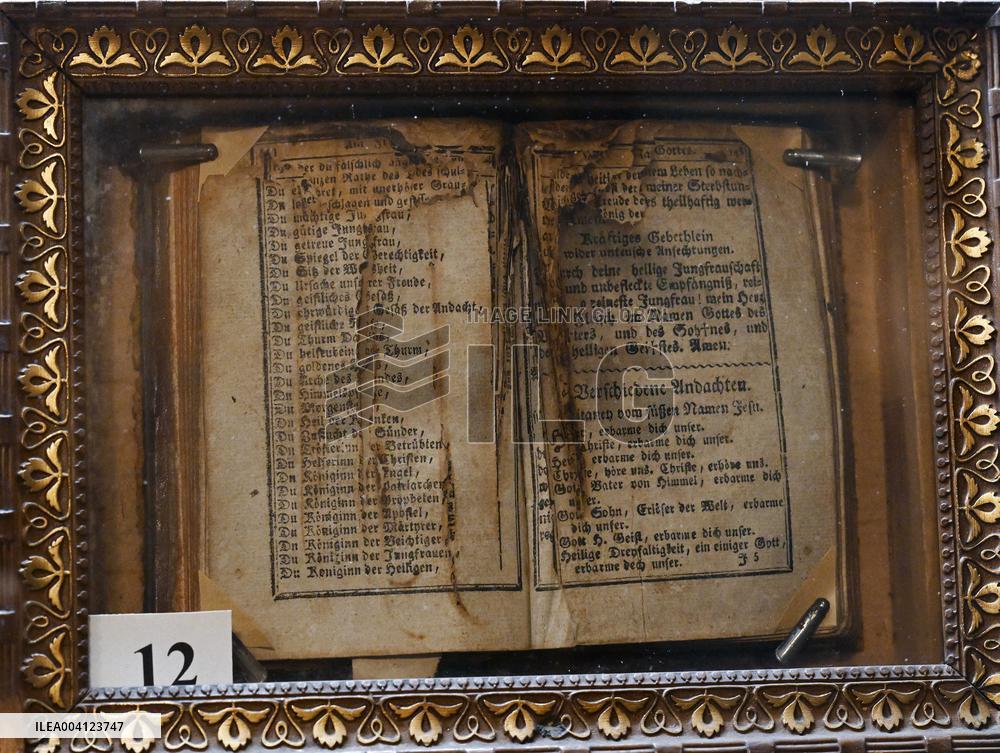 der du fälschlich
Rathe des
mit unerhörter
schlagen und
Du mächtige
Du gütige Jungfrau,
Du getreue Jungfrau,
Du Spiegel der Gerechtigkeit,
Du Sitz der
Du Ursache unserer Freude,
Du geistliches
Du ehrwürdiges Gefäß der Andacht,
Du geistliche
Du Thurm
Du helfenbein Thurm,
Du goldenes
Du Arche des
Du
Du
Du Heil der
Du Zuflucht der Sünder,
Du der Betrübten
Du Helferinn der Christen,
Du Königinn der Engel,
Du Königinn der Patriarchen
Du Königinn der Propheten
Du Königinn der Apostel,
Du Königinn der Märtyrer,
Du Königinn der Beichtiger,
Du Königinn der Jungfrauen,
Du Königinn der Heiligen,
Gottes.
Leben so
meiner Sterbstun-
theilhaftig wer-
der
Kräftiges Gebethlein
wider unkeusche Anfechtungen.
deine heilige Jungfrauschaft
und unbefleckte Empfängniß,
reineste Jungfrau! mein Herz
Namen Gottes des
und des Sohnes, und
heiligen Geistes. Amen.
Verschiedene Andachten.
Litaney vom süßen Namen Jesu.
erbarme dich unser.
Christe, erbarme dich unser.
erbarme dich unser.
Christe, höre uns. Christe, erhöre uns.
Gott Vater von Himmel, erbarme dich
Gott Sohn, Erlöser der Welt, erbarme
dich unser.
Gott H. Geist, erbarme dich unser.
Heilige Dreyfaltigkeit, ein einiger Gott,
erbarme dich unser. J 5
12
IMAGE LINK GLOBAL
ILG
ILEA004123747